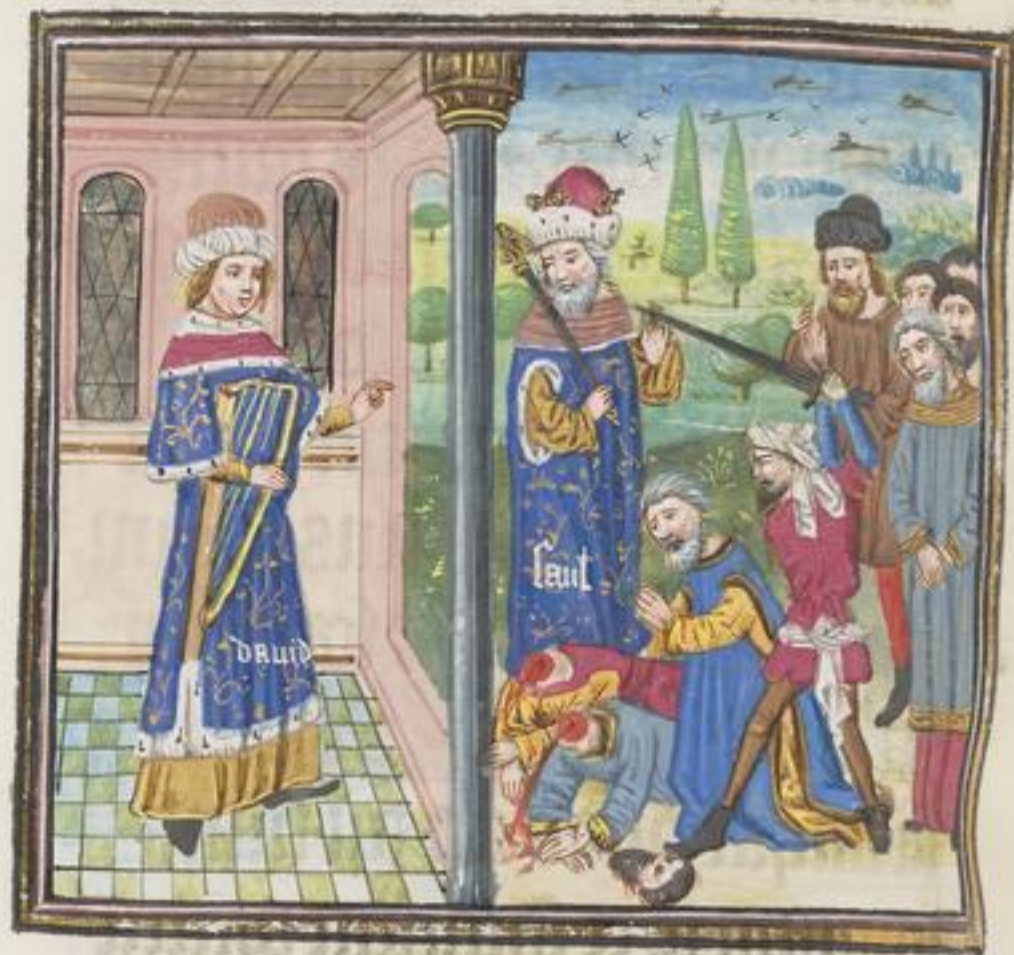 DAUID
ſaul